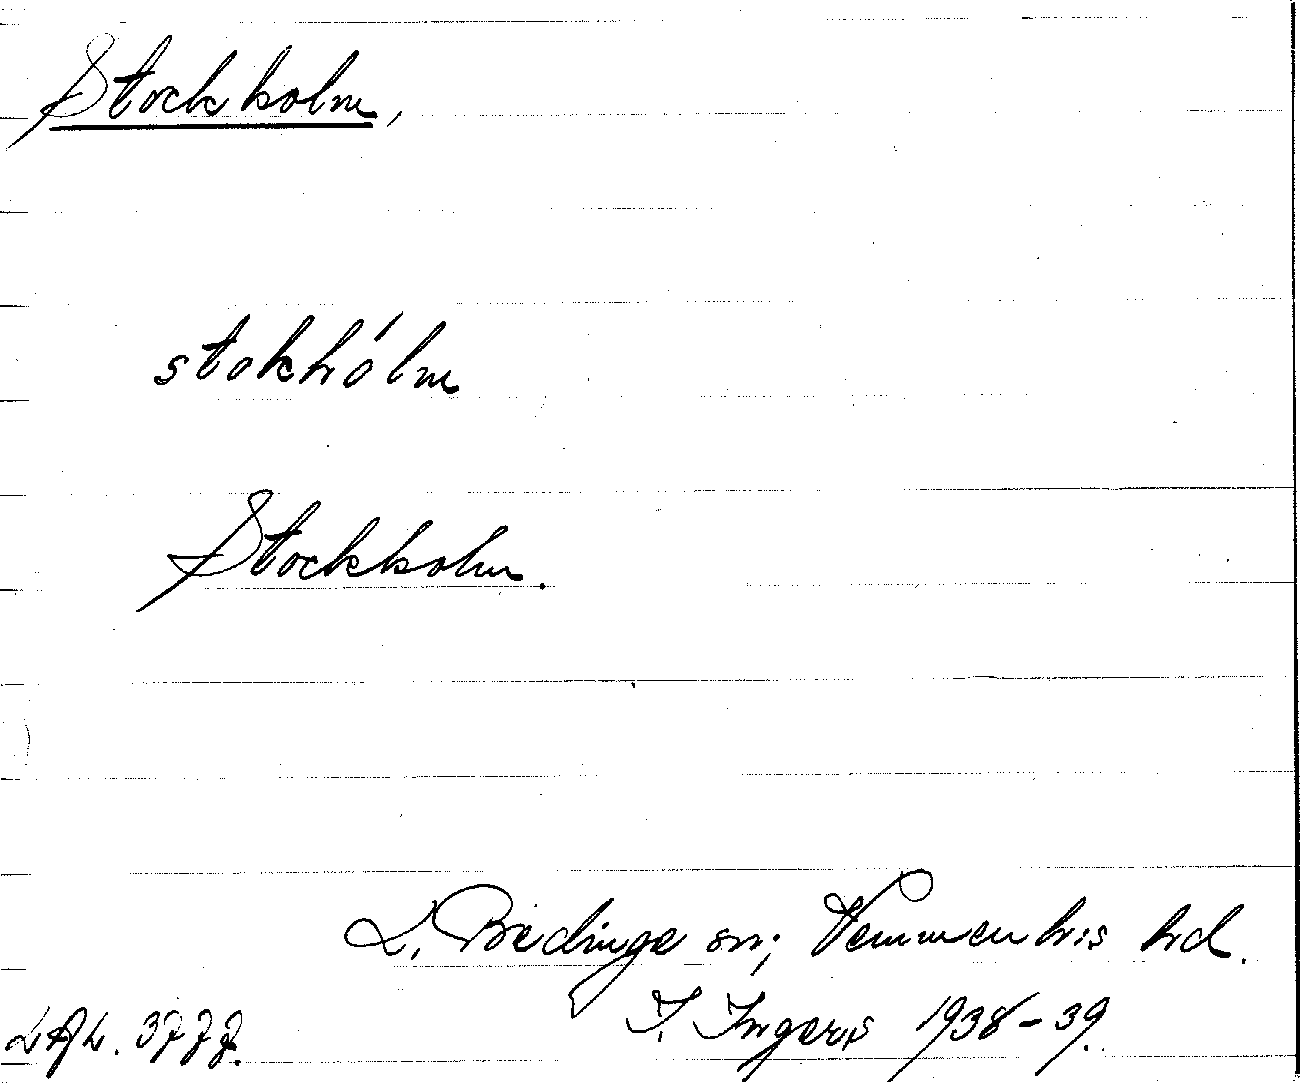 Stockholm,
stokhólm
Stockholm.
L. Bedinge sn; Vemmenhös hd.
I. Ingers 1938-39.
LAL. 3777.